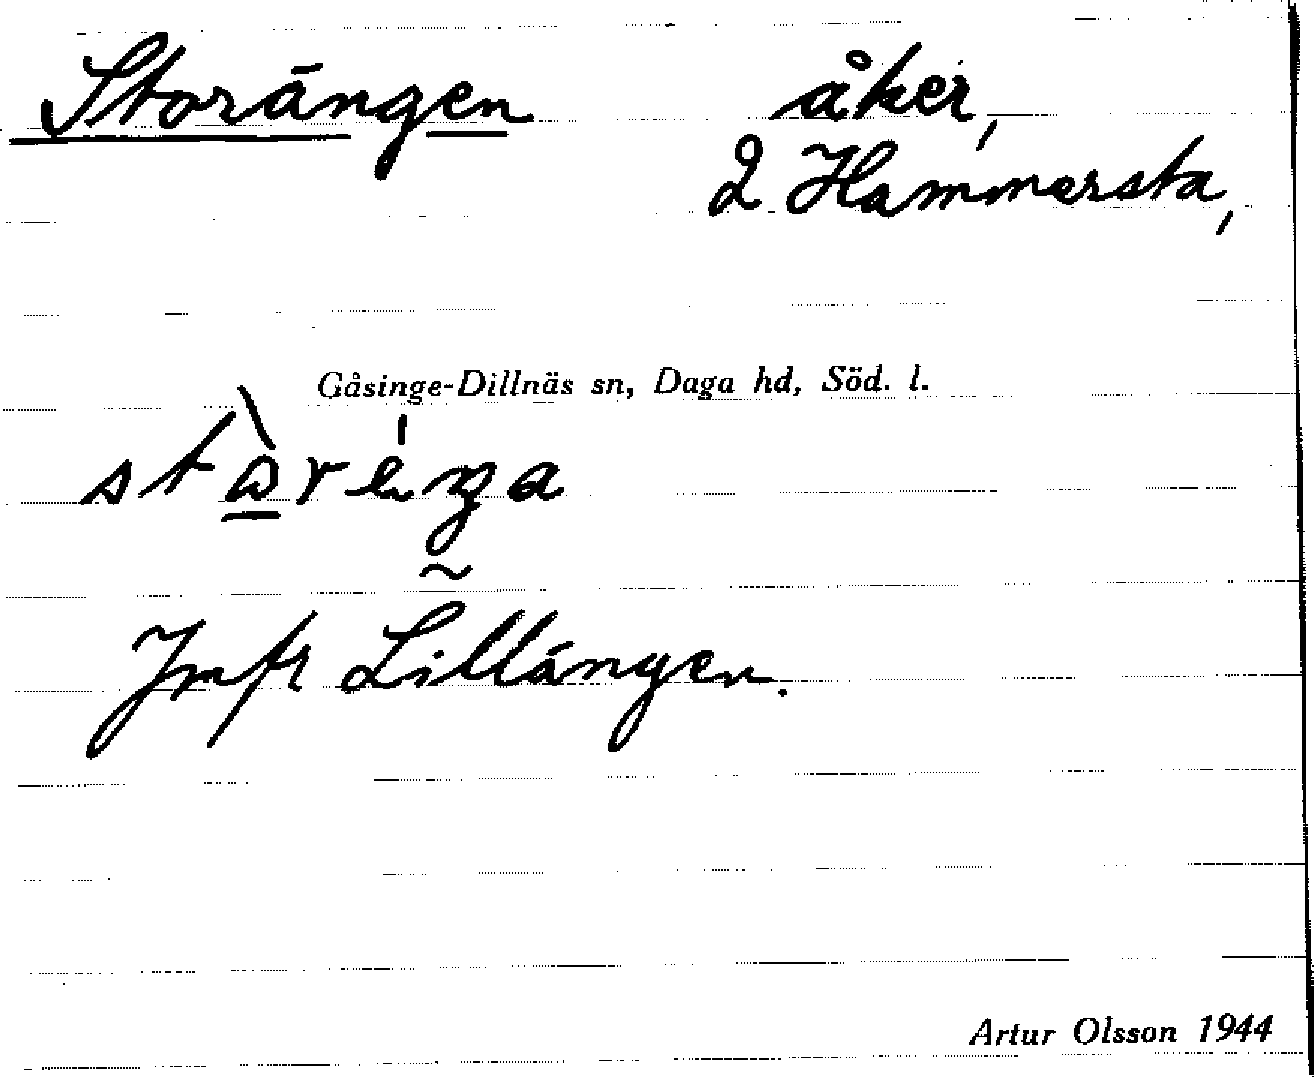 Storängen åker,
2 Hammersta,
Gåsinge-Dillnäs sn, Daga hd, Söd. l.
Jmfr Lillängen.
Artur Olsson 1944